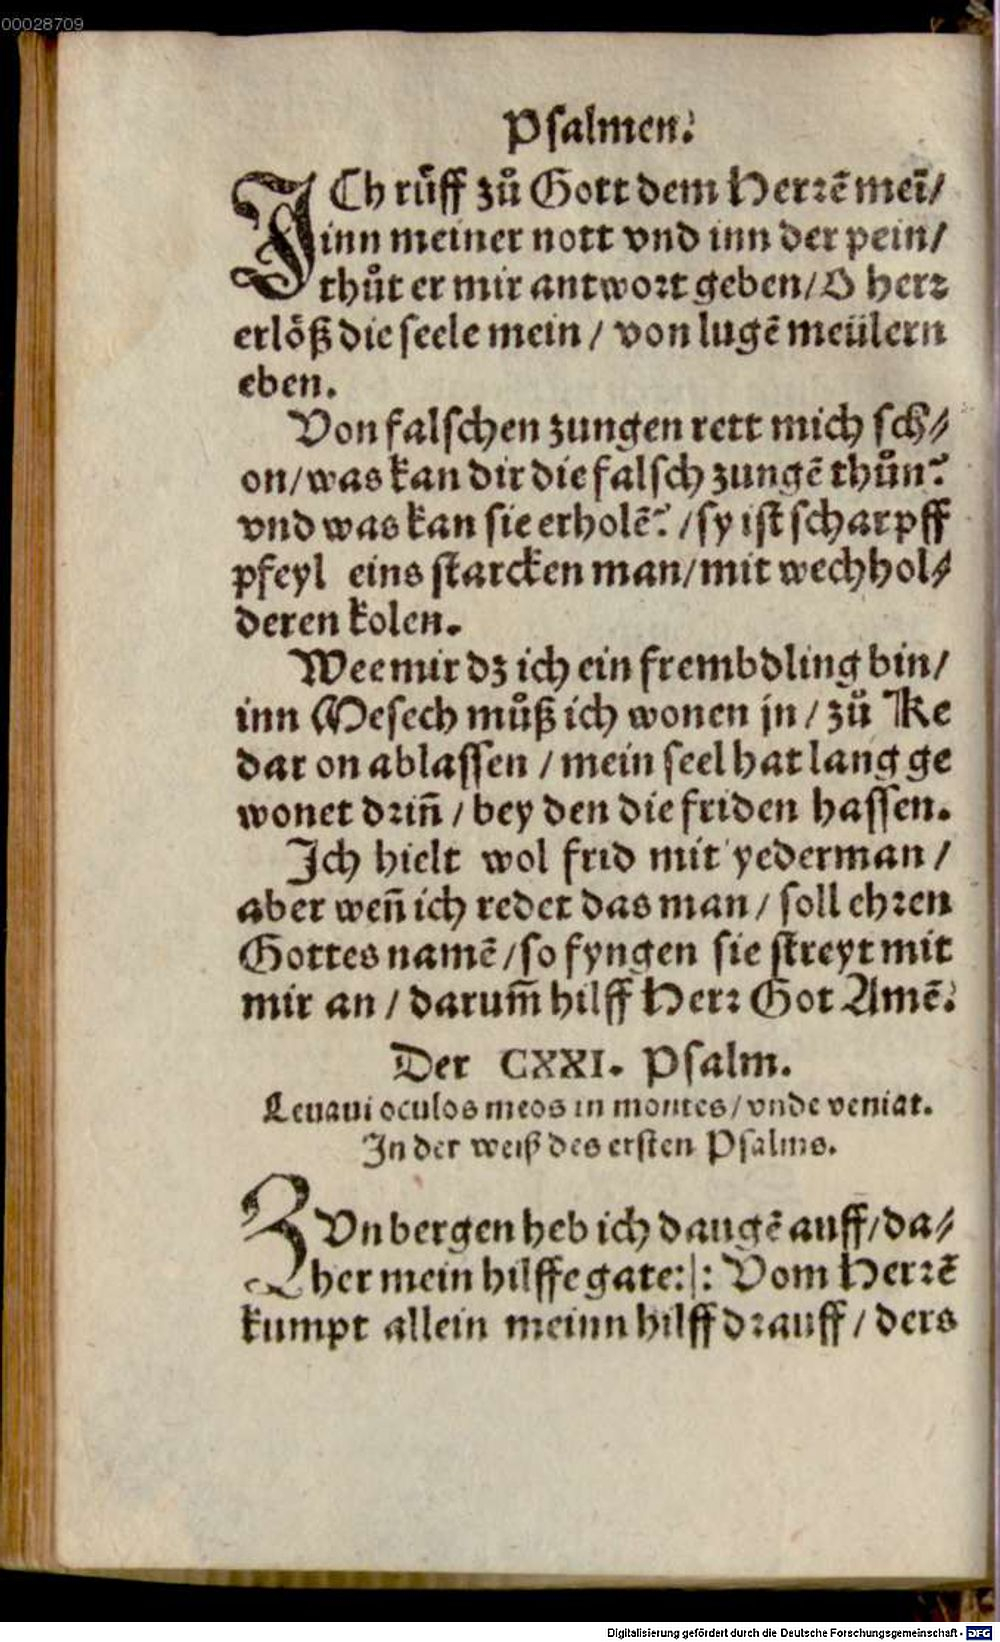 00028709
Psalmen.
ICh růff zů Gott dem Herrẽ meĩ/
inn meiner nott vnd inn der pein/
thůt er mir antwort geben/O herr
erlöß die seele mein / von lugẽ meülern
eben.
Von falschen zungen rett mich sch⸗
on/was kan dir die falsch zungẽ thůn?
vnd was kan sie erholẽ? /sy ist scharpff
pfeyl eins starcken man/mit wechhol⸗
deren kolen.
Wee mir dz ich ein frembdling bin/
inn Mesech můß ich wonen jn / zů Ke
dar on ablassen / mein seel hat lang ge
wonet driñ / bey den die friden hassen.
Ich hielt wol frid mit yederman /
aber weñ ich redet das man / soll ehren
Gottes namẽ /so fyngen sie streyt mit
mir an / darum̃ hilff Herr Got Amẽ.
Der CXXI. Psalm.
Leuaui oculos meos in montes/vnde veniat.
In der weiß des ersten Psalms.
ZVn bergen heb ich d augẽ auff/da⸗
her mein hilffe gate:|: Vom Herrẽ
kumpt allein meinn hilff drauff / ders
Digitalisierung gefördert durch die Deutsche Forschungsgemeinschaft - DFG